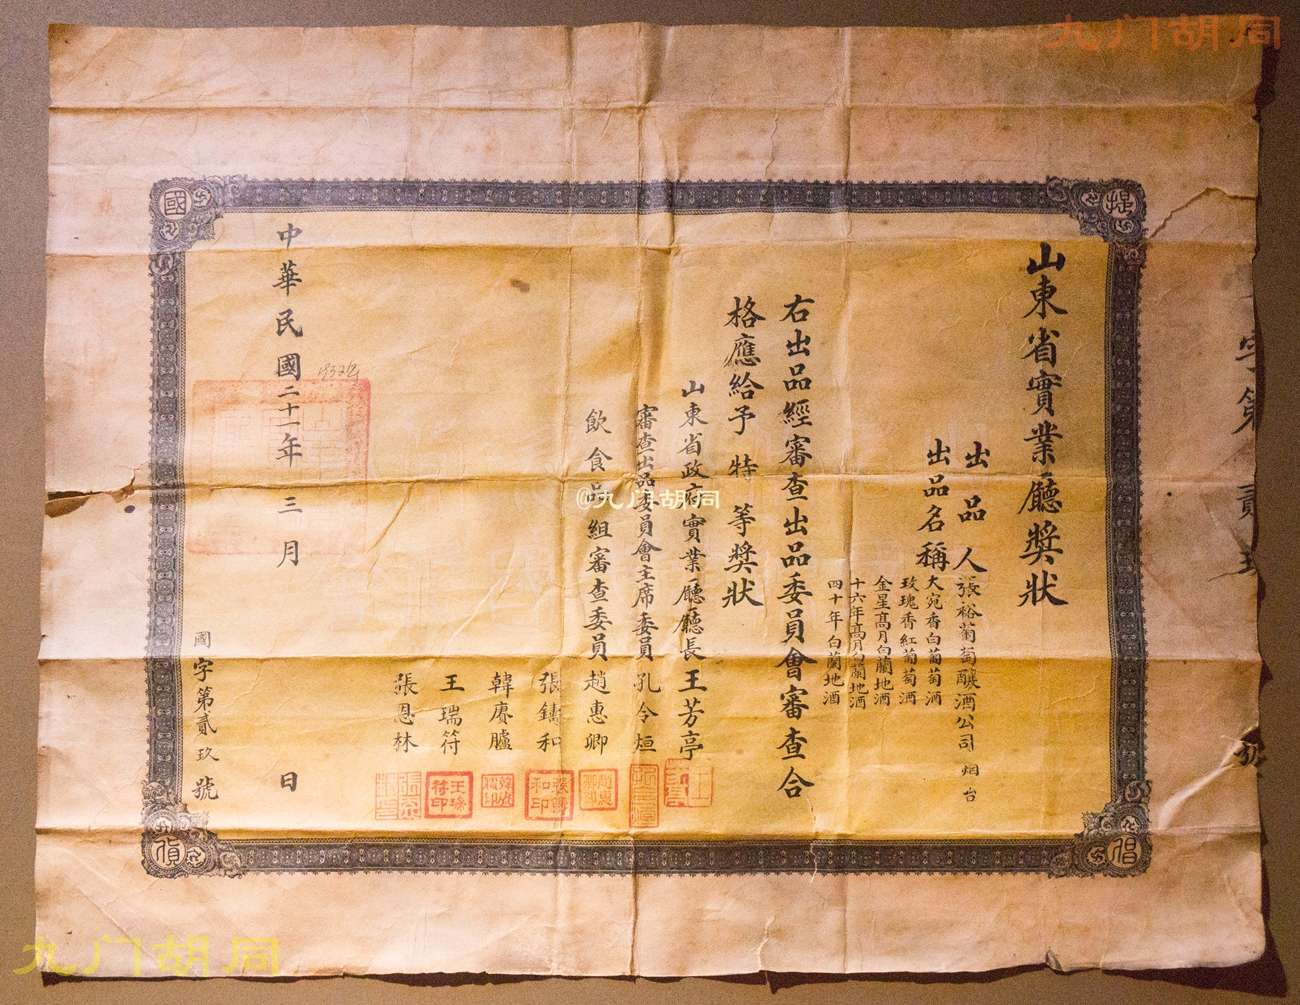 山東省實業廳獎狀
出品人張裕葡萄釀酒公司 烟台
出品名稱
大宛香白葡萄酒
玫瑰香紅葡萄酒
金星高月白蘭地酒
十六年高月白蘭地酒
四十年白蘭地酒
右出品經審查出品委員會審查合
格應給予特等獎狀
山東省政府實業廳廳長王芳亭
審查出品委員會主席委員孔令烜
飲食品組審查委員趙惠卿
張鑄和
韓賡臚
王瑞符
張恩林
中華民國二十一年三月 日
1932年
國字第貳玖號
提
倡
國
貨
字第貳玖號
王瑞符印
九门胡同
@九门胡同
九门胡同